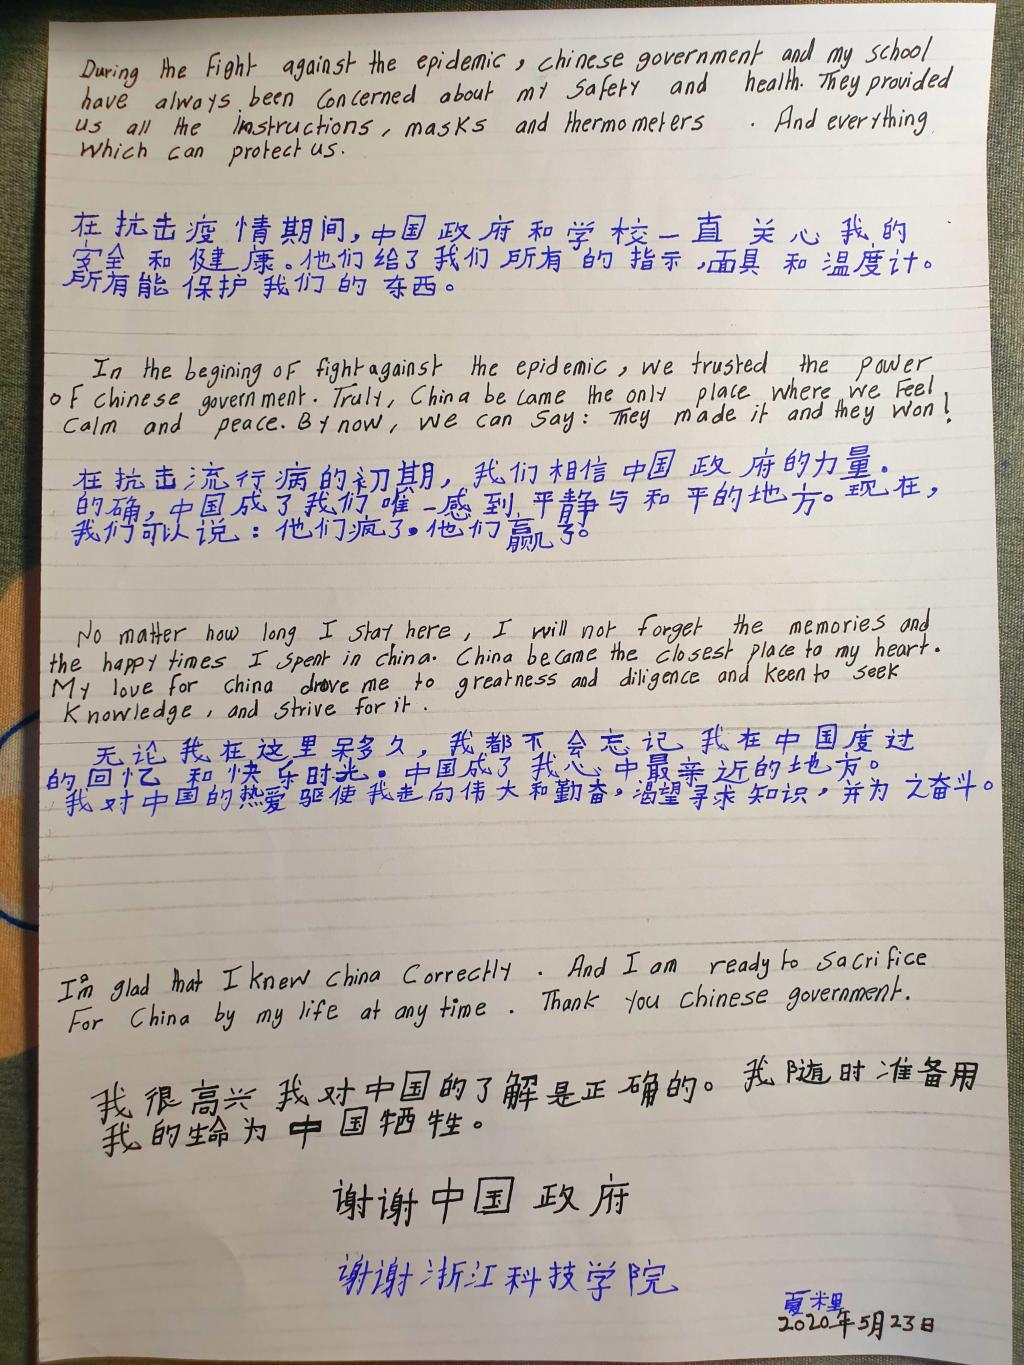 During the Fight against the epidemic, chinese government and my school
have always been concerned about my safety and health. They provided
us all the Instructions, masks and thermometers . And everything
which can protect us.
在抗击疫情期间,中国政府和学校一直关心我的
安全和健康。他们给了我们所有的指示,面具和温度计。
所有能保护我们的东西。
In the begining of fight against the epidemic, we trusted the power
of chinese government. Truly, China became the only place where we feel
calm and peace. By now, we can say: They made it and they won!
在抗击流行病的初期,我们相信中国政府的力量.
的确,中国成了我们唯一感到平静与和平的地方。现在,
我们可以说:他们疯了。他们赢了。
No matter how long I stay here, I will not forget the memories and
the happy times I spent in china. China became the closest place to my heart.
My love for china drove me to greatness and diligence and keen to seek
knowledge, and strive for it.
无论我在这里呆多久,我都不会忘记我在中国度过
的回忆和快乐时光.中国成了我心中最亲近的地方。
我对中国的热爱驱使我走向伟大和勤奋,渴望寻求知识,并为之奋斗。
I'm glad that I knew china correctly. And I am ready to sacrifice
For China by my life at any time. Thank you chinese government.
我很高兴我对中国的了解是正确的。我随时准备用
我的生命为中国牺牲。
谢谢中国政府
谢谢浙江科技学院
夏米里
2020年5月23日